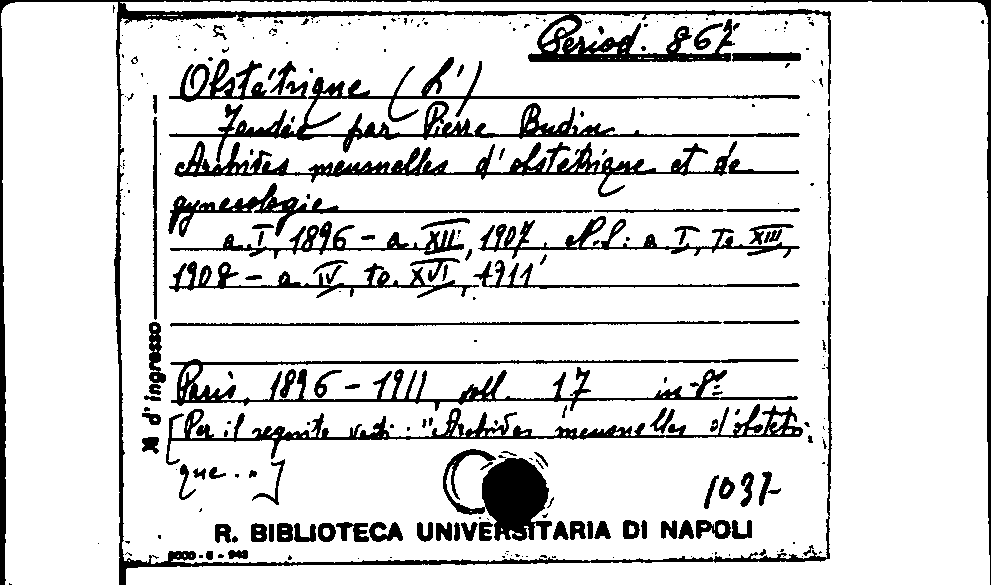 Period. 867
Obstétrique (L')
Fondée par Pierre Budin.
Archives mensuelles d'obstétrique et de
gynecologie
a. I, 1896 - a. XII, 1907. N.S: a I, To. XIII,
1908 - a. IV, to. XVI, 1911
Paris, 1896 - 1911, voll. 17 in-8º
[Per il seguito vedi: "Archives mensuelles d'obstétri-
que..."]
N d'ingresso
R. BIBLIOTECA UNIVERSITARIA DI NAPOLI